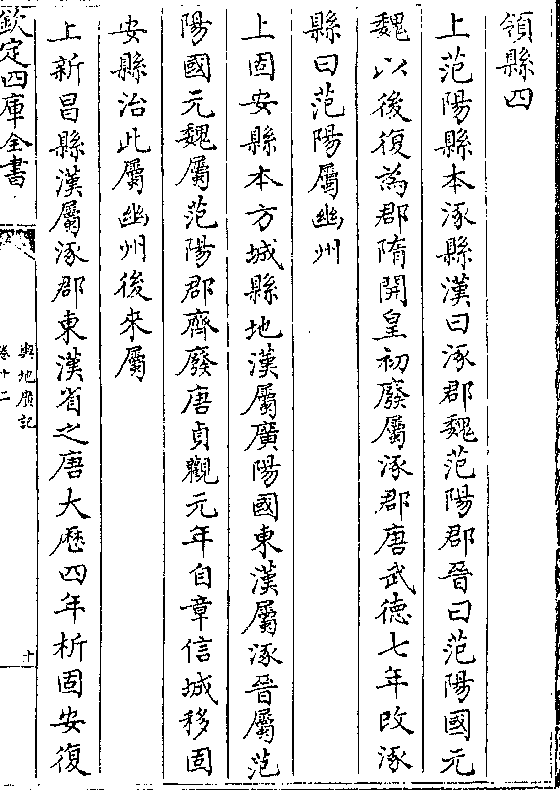 領縣四
上范陽縣本涿縣漢曰涿郡魏范陽郡晉曰范陽國元
魏以後復為郡隋開皇初廢屬涿郡唐武德七年改涿
縣曰范陽屬幽州
上固安縣本方城縣地漢屬廣陽國東漢屬涿晉屬范
陽國元魏屬范陽郡齊廢唐貞觀元年自章信城移固
安縣治此屬幽州後來屬
上新昌縣漢屬涿郡東漢省之唐大歷四年析固安復
欽定四庫全書
輿地廣記
卷十二
十